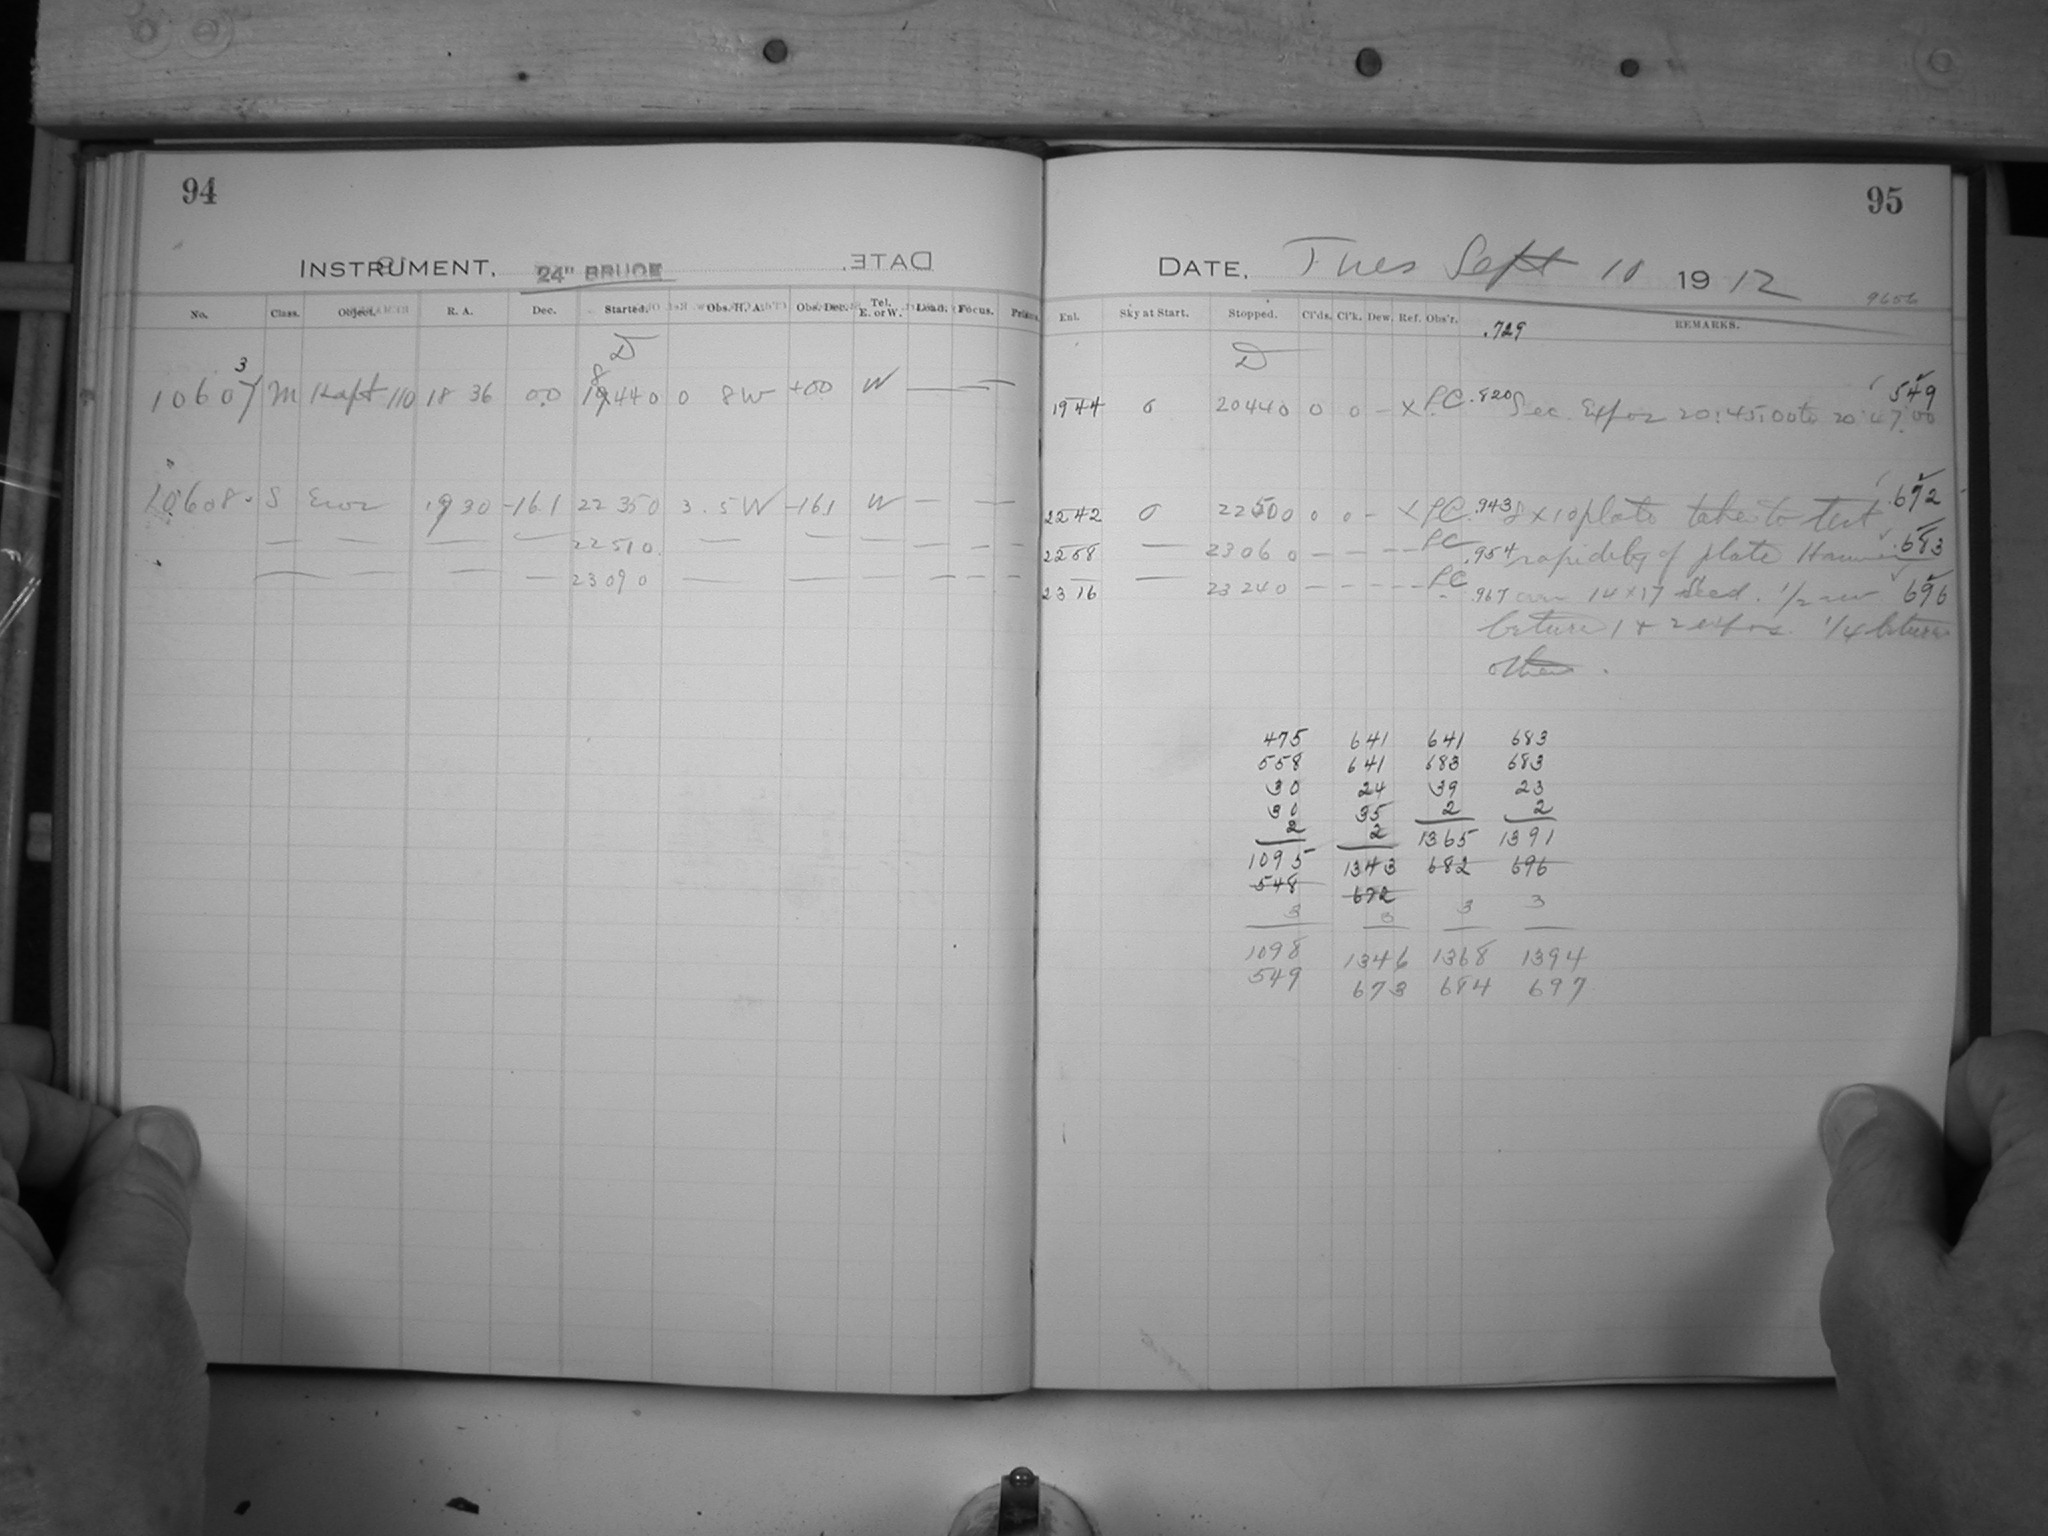 94
INSTRUMENT, 24" BRUCE
No. Class. Object. R. A. Dec. Started. Obs. H. A. Obs. Dec. Tel. E. or W. Load. Focus.
D
3
8
10607 M Kapt 110 18 36 00 19 44 0 0 8 W +00 W — —
10608 S Eros 19 30 -16.1 22 35 0 3.5 W -16.1 W — —
— — — — 22 51 0 — — — — — —
— — — — 23 09 0 — — — — — —
95
DATE, Tues Sept 10 1912
9656
Ent. Sky at Start. Stopped. Cl'ds. Cl'k. Dew. Ref. Obs'r. REMARKS.
.729
D
549
1944 0 20 44 0 0 0 – X P.C. .820 Sec. Expos 20:45:00 to 20:47:00
2242 0 22 50 0 0 0 – X P.C. .943 8 x 10 plate taken to test .672
2258 — 23 06 0 – – – – P.C. .954 rapidity of plate .683
2316 — 23 24 0 – – – – P.C. .967 14 x 17 Seed. 1/2 rev 696
between 1 & 2 expos. 1/4 between
others.
475 641 641 683
558 641 683 683
30 24 39 23
30 35 2 2
2 2 1365 1391
1095 1343 682 696
548 672
3 3 3 3
1098 1346 1368 1394
549 673 684 697